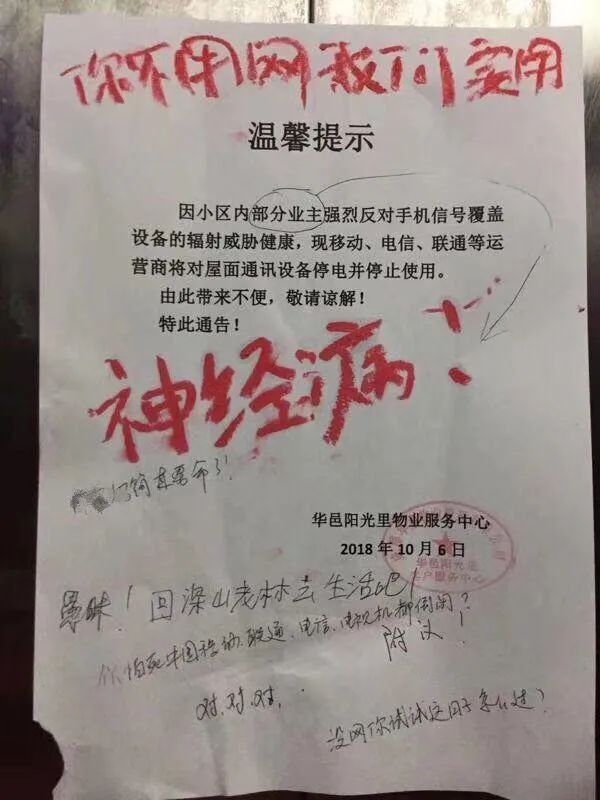 你不用网我们实用
温馨提示
因小区内部分业主强烈反对手机信号覆盖
设备的辐射威胁健康，现移动、电信、联通等运
营商将对屋面通讯设备停电并停止使用。
由此带来不便，敬请谅解！
特此通告！
神经病！
简直要命了！
华邑阳光里物业服务中心
2018 年 10 月 6 日
华邑阳光里
客户服务中心
愚昧！回深山老林去生活吧！
你怕死中国移动、联通、电信、电视机都倒闭？
附议！
对、对、对、
没网你试试这日子怎么过？